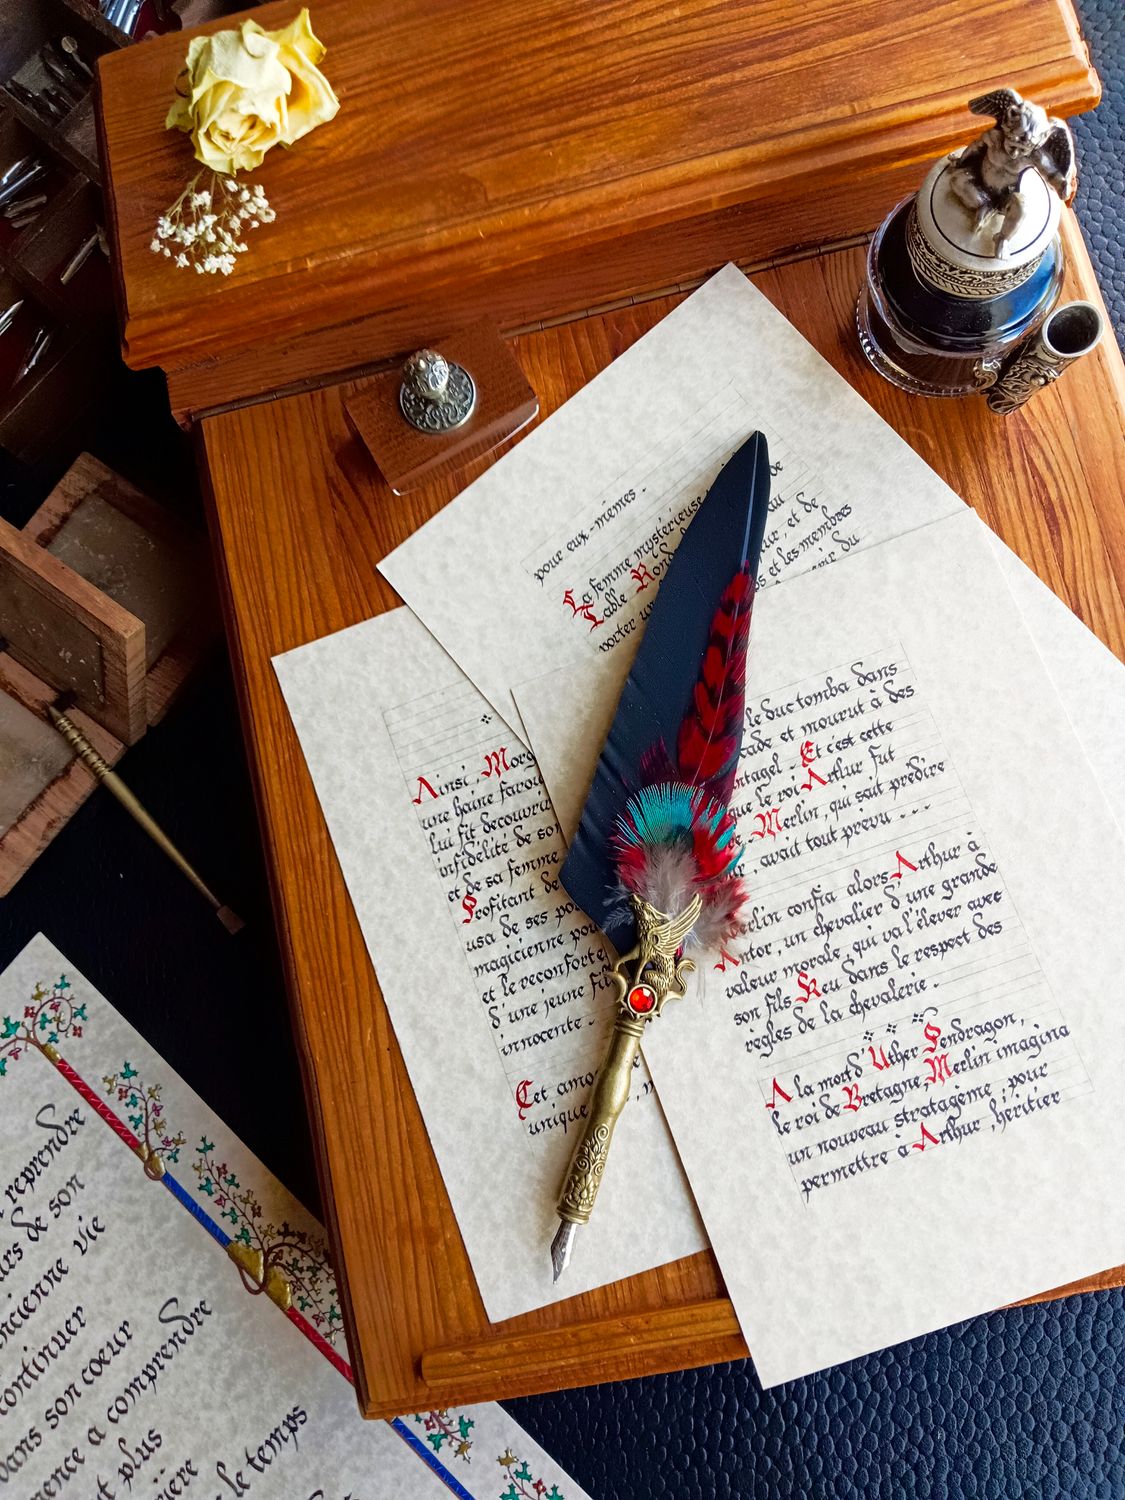 pour eux-mêmes.
La femme mystérieuse de
Table Rond au
porter un ur, et de
s et les membres
du
Ainsi, Morg
une haine farou
lui fit découvrir
infidélité de son
et de sa femme
Profitant de
usa de ses po
magicienne pou
et le réconforte
d'une jeune fil
innocente.
Cet amo
unique
le duc tomba dans
cade et mourut à des
ntagel. Et c'est cette
que le roi Arthur fut
e. Merlin, qui sait prédire
r, avait tout prévu...
Merlin confia alors Arthur à
Antor, un chevalier d'une grande
valeur morale, qui va l'élever avec
son fils Keu dans le respect des
règles de la chevalerie.
A la mort d'Uther Pendragon,
le roi de Bretagne, Merlin imagina
un nouveau stratagème, pour
permettre à Arthur, héritier
reprendre
urs de son
ncienne vie
continuer
dans son coeur
mence à comprendre
t plus
ière
le temps